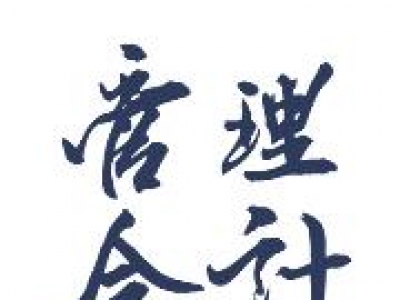 管理
会计